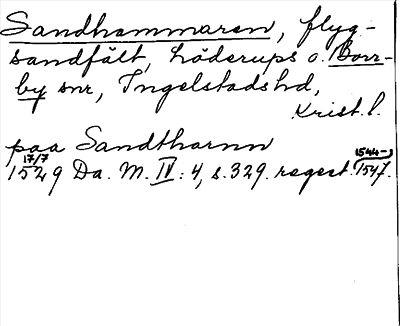 Sandhammaren, flyg-
sandfält, Löderups o. Borr-
by snr, Ingelstads hd,
Krist. l.
paa Sandtharnn
17/7 1544-
1529 Da. M. IV: 4, s. 329. regest. 1547.